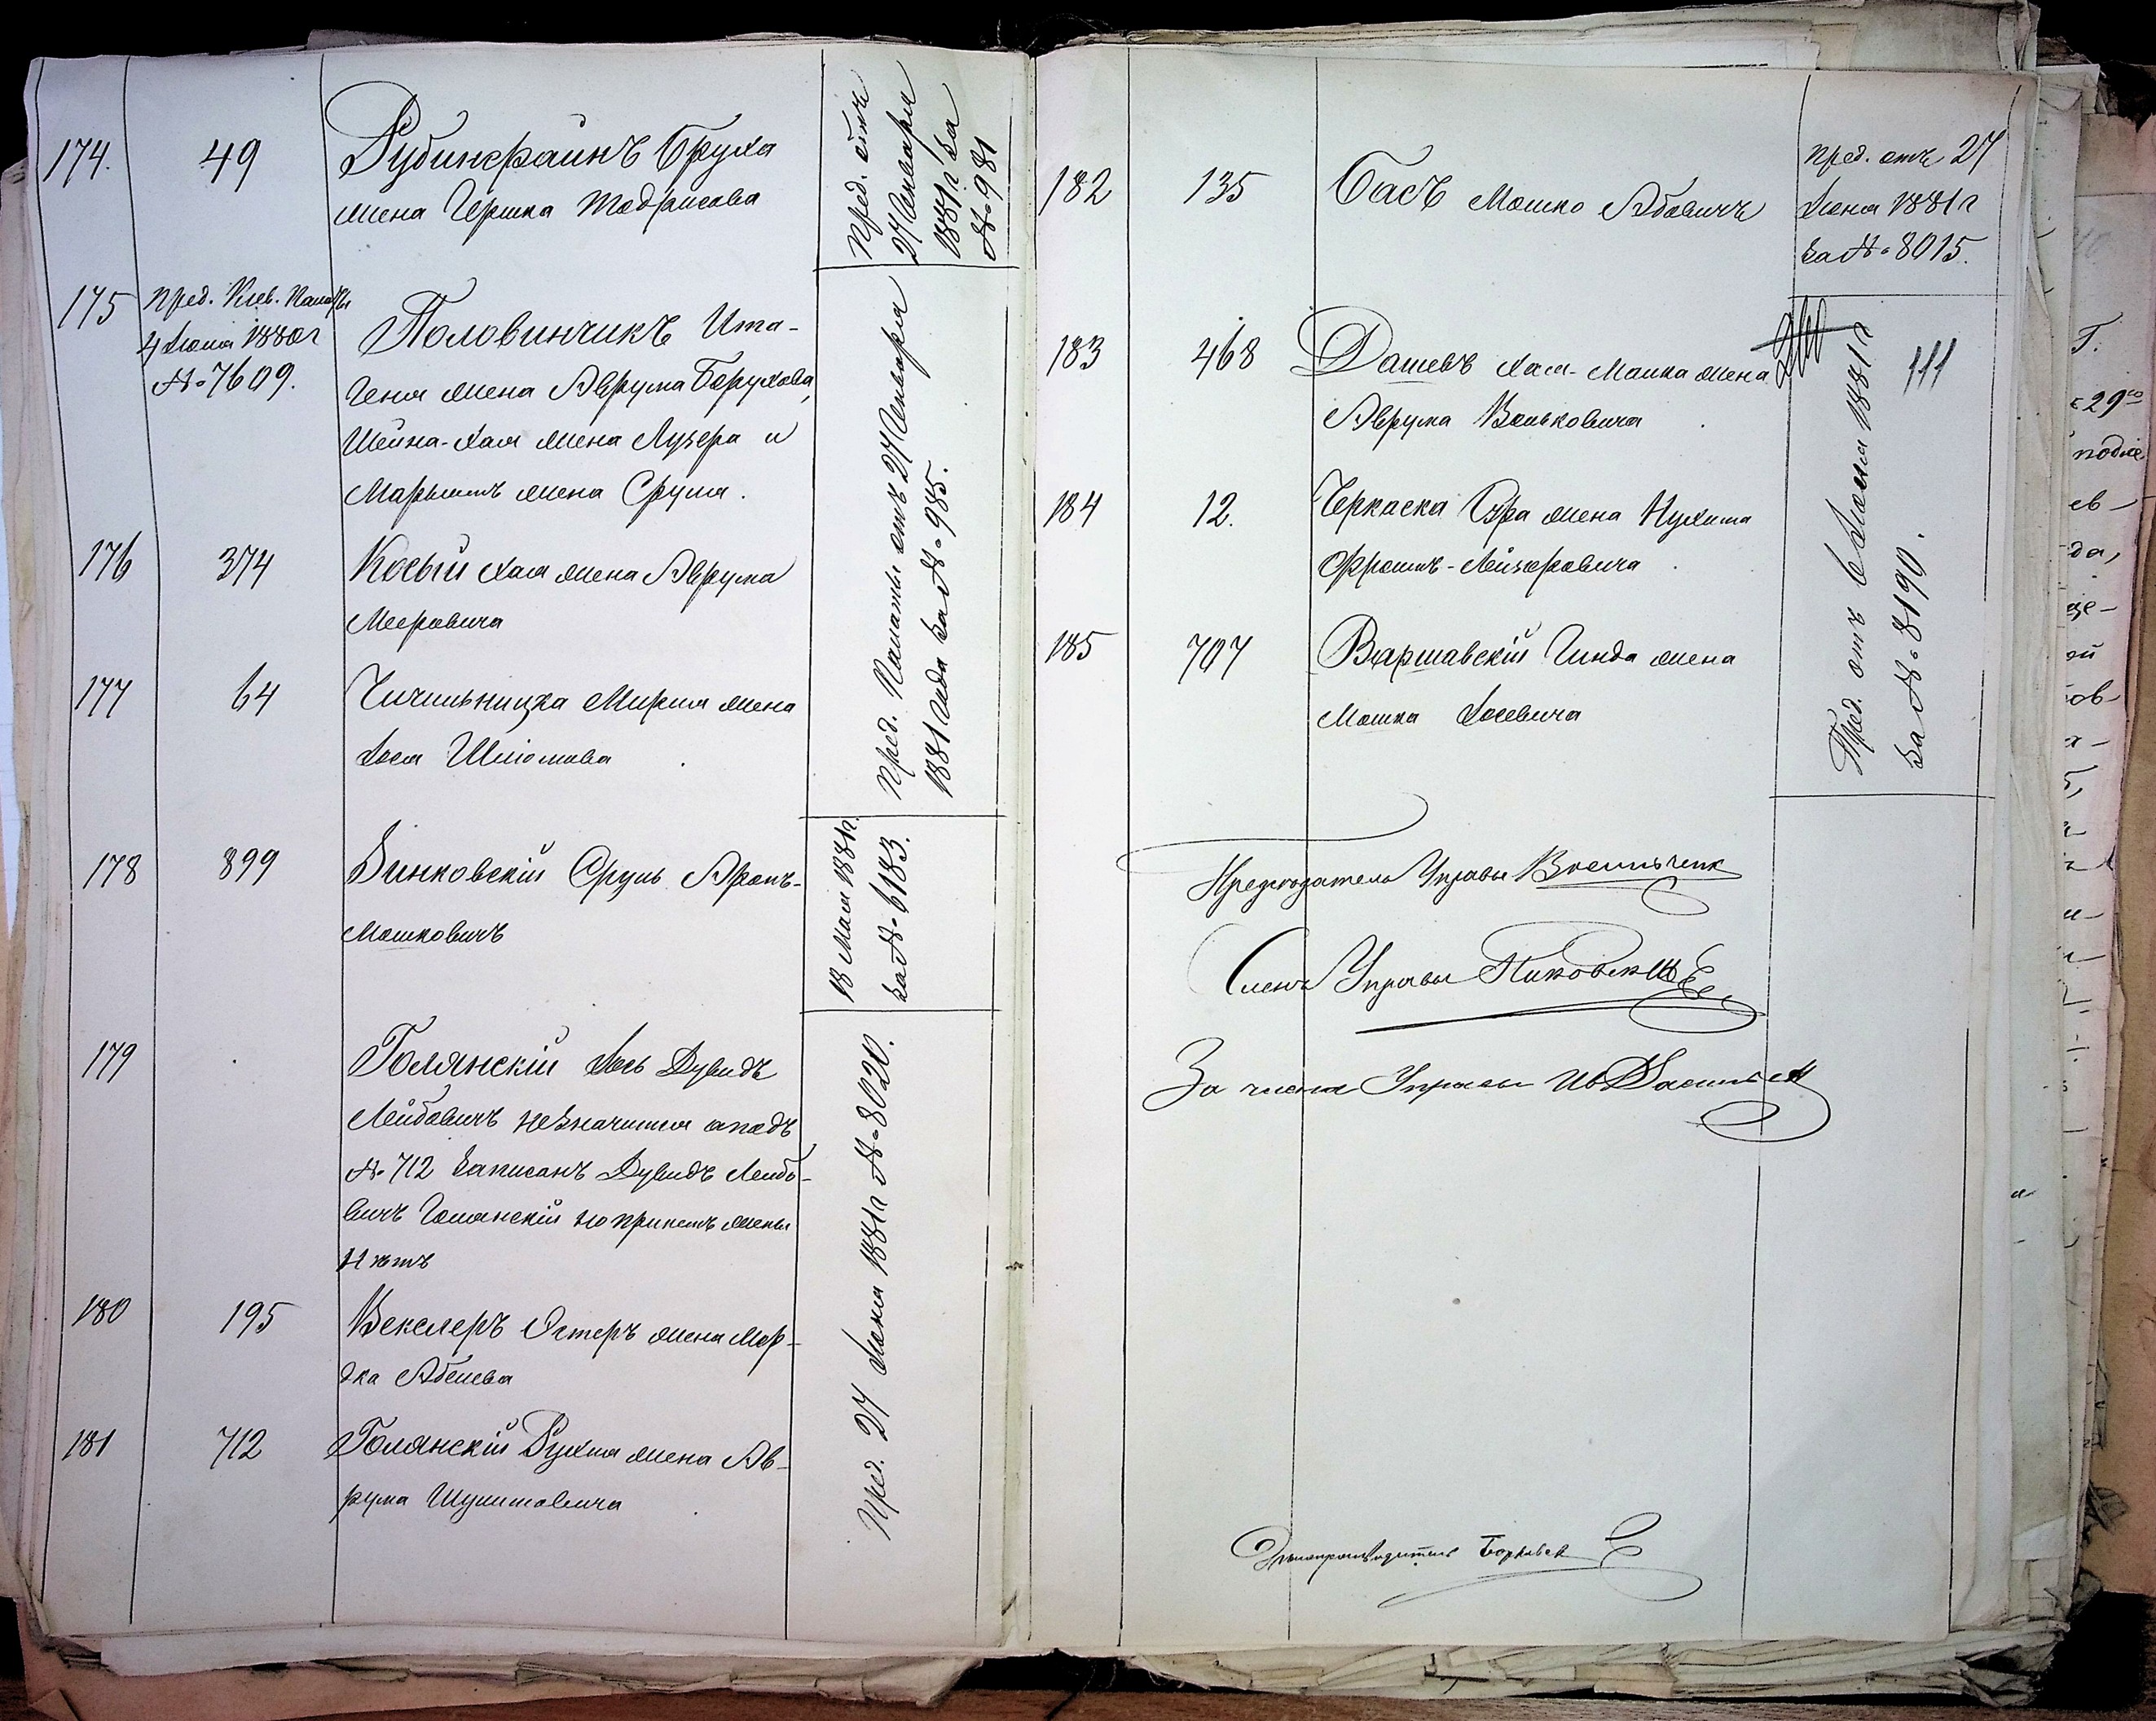 174.
49
Рубинфайнъ Бруха
жена Гершка Тодрисова
Пред. отъ
27 Января
1881 г. за
№ 981
175
Пред. Кіев. Палаты
4 Іюня 1880 г
№ 7609.
Половинчикъ Ита-
Геня жена Аврума Борухова,
Шейна-Хая жена Лузера и
Марьямъ жена Сруля.
176
374
Косый Хая жена Аврума
Мееровича
177
64
Чичильницка Мирля жена
Іося Шліомова
Пред. Палаты отъ 27 Января
1881 года за № 985.
178
899
Зинковскій Сруль Аронъ-
Мошковичъ
18 Мая 1881 г.
за № 6183.
179
Голянскій Іось Дувидъ
Лейбовичъ не значится а подъ
№ 712 записанъ Дувидъ Лейбо-
вичъ Голянскій но при немъ жены
Нѣтъ
180
195
Векслеръ Эстеръ жена Мор-
дка Абелева
181
712
Голянскій Рухля жена Ав-
рума Шулимовича
Пред. 27 Іюня 1881 г № 8020.
182
135
Басъ Мошко Абовичъ
Пред. отъ 27
Іюня 1881 г
за № 8015.
183
468
Дашевъ Хая-Малка жена
Аврума Вольковича
111
184
12.
Черкаска Сура жена Нухима
Эфроимъ-Лейзеровича
185
707
Варшавскій Гинда жена
Мошка Іосевича
Пред. отъ 6 Іюля 1881 г
за № 8190.
Председатель Управы
Членъ Управы
За члена Управы
Дѣлопроизводитель